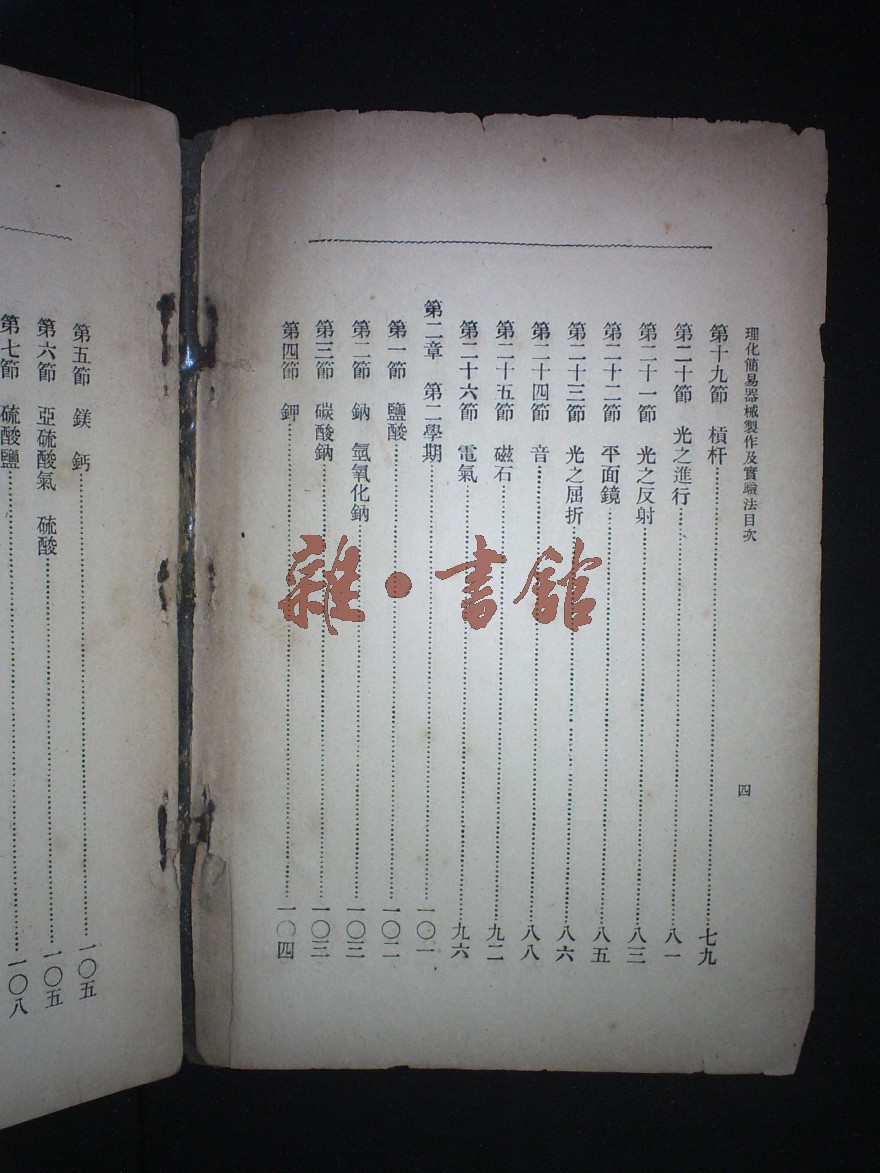 理化簡易器械製作及實驗法目次
四
第十九節 槓杆 七九
第二十節 光之進行 八一
第二十一節 光之反射 八三
第二十二節 平面鏡 八五
第二十三節 光之屈折 八六
第二十四節 音 八八
第二十五節 磁石 九二
第二十六節 電氣 九六
第二章 第二學期 一〇一
第一節 鹽酸 一〇二
第二節 鈉 氫氧化鈉 一〇三
第三節 碳酸鈉 一〇三
第四節 鉀 一〇四
第五節 鎂 鈣 一〇五
第六節 亞硫酸氣 硫酸 一〇五
第七節 硫酸鹽 一〇八
雜·書館